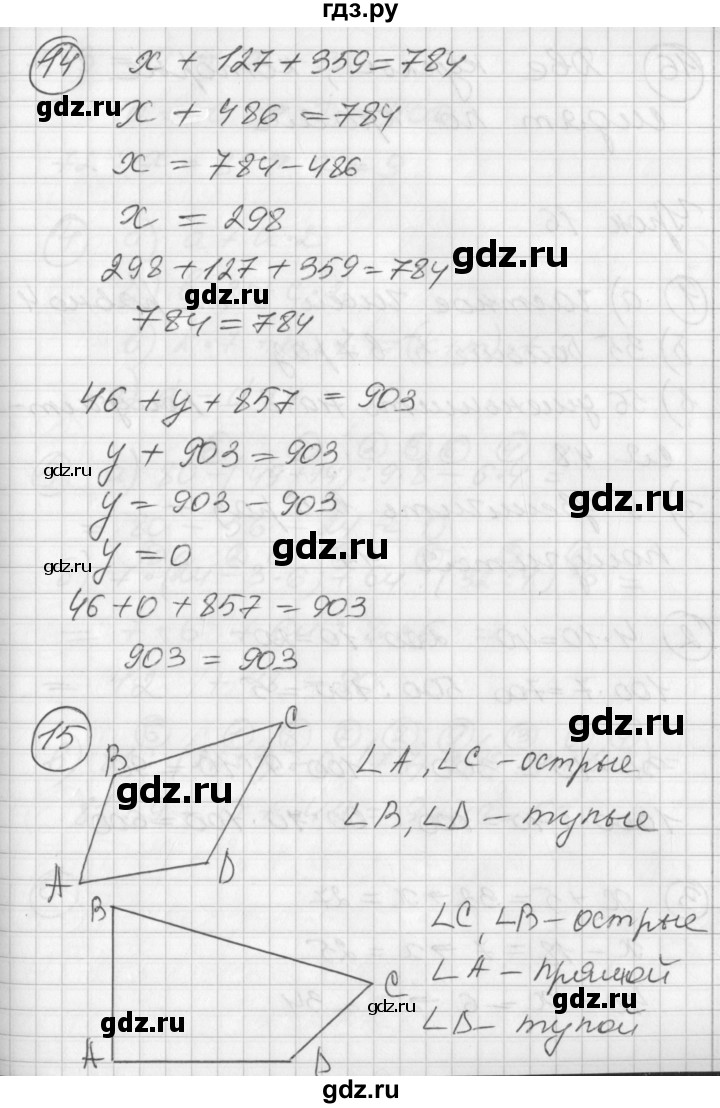 гдз.ру
14
x + 127 + 359 = 784
gdz.ru
x + 486 = 784
x = 784 - 486
x = 298
gdz.ru
298 + 127 + 359 = 784
gdz.ru
784 = 784
46 + y + 857 = 903
gdz.ru
y + 903 = 903
y = 903 - 903
gdz.ru
gdz.ru
y = 0
gdz.ru
46 + 0 + 857 = 903
903 = 903
15
B
C
A
D
gdz.ru
gdz.ru
∠A, ∠C - острые
∠B, ∠D - тупые
B
C
A
D
gdz.ru
gdz.ru
∠C, ∠B - острые
∠A - прямой
gdz.ru
∠D - тупой
gdz.ru
gdz.ru